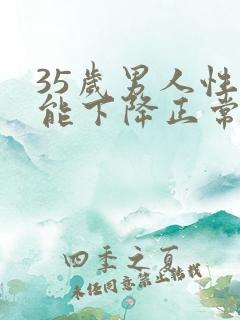 35岁男人性
能下降正常
四季之夏
未经同意禁止转载